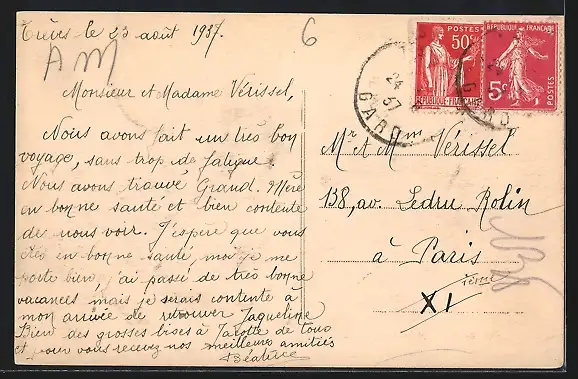 Trèves le 23 août 1937.
6
AM
Monsieur et Madame Vérissel,
Nous avons fait un très bon
voyage, sans trop de fatigue.
Nous avons trouvé Grand. Mère
en bonne santé et bien contente
de nous voir. J'espère que vous
êtes en bonne santé, moi je me
porte bien, j'ai passé de très bonne
vacances mais je serais contente à
mon arrivée de retrouver Jaqueline
Bien des grosses bises à Jacotte de tous
et pour vous recevez nos meilleures amitiés
Béatrice
POSTES
50c
RÉPUBLIQUE FRANÇAISE
RÉPUBLIQUE FRANÇAISE
5c
POSTES
24
37
GARD
GARD
Mr et Mme Vérissel
138, av. Ledru Rolin
à Paris
XI